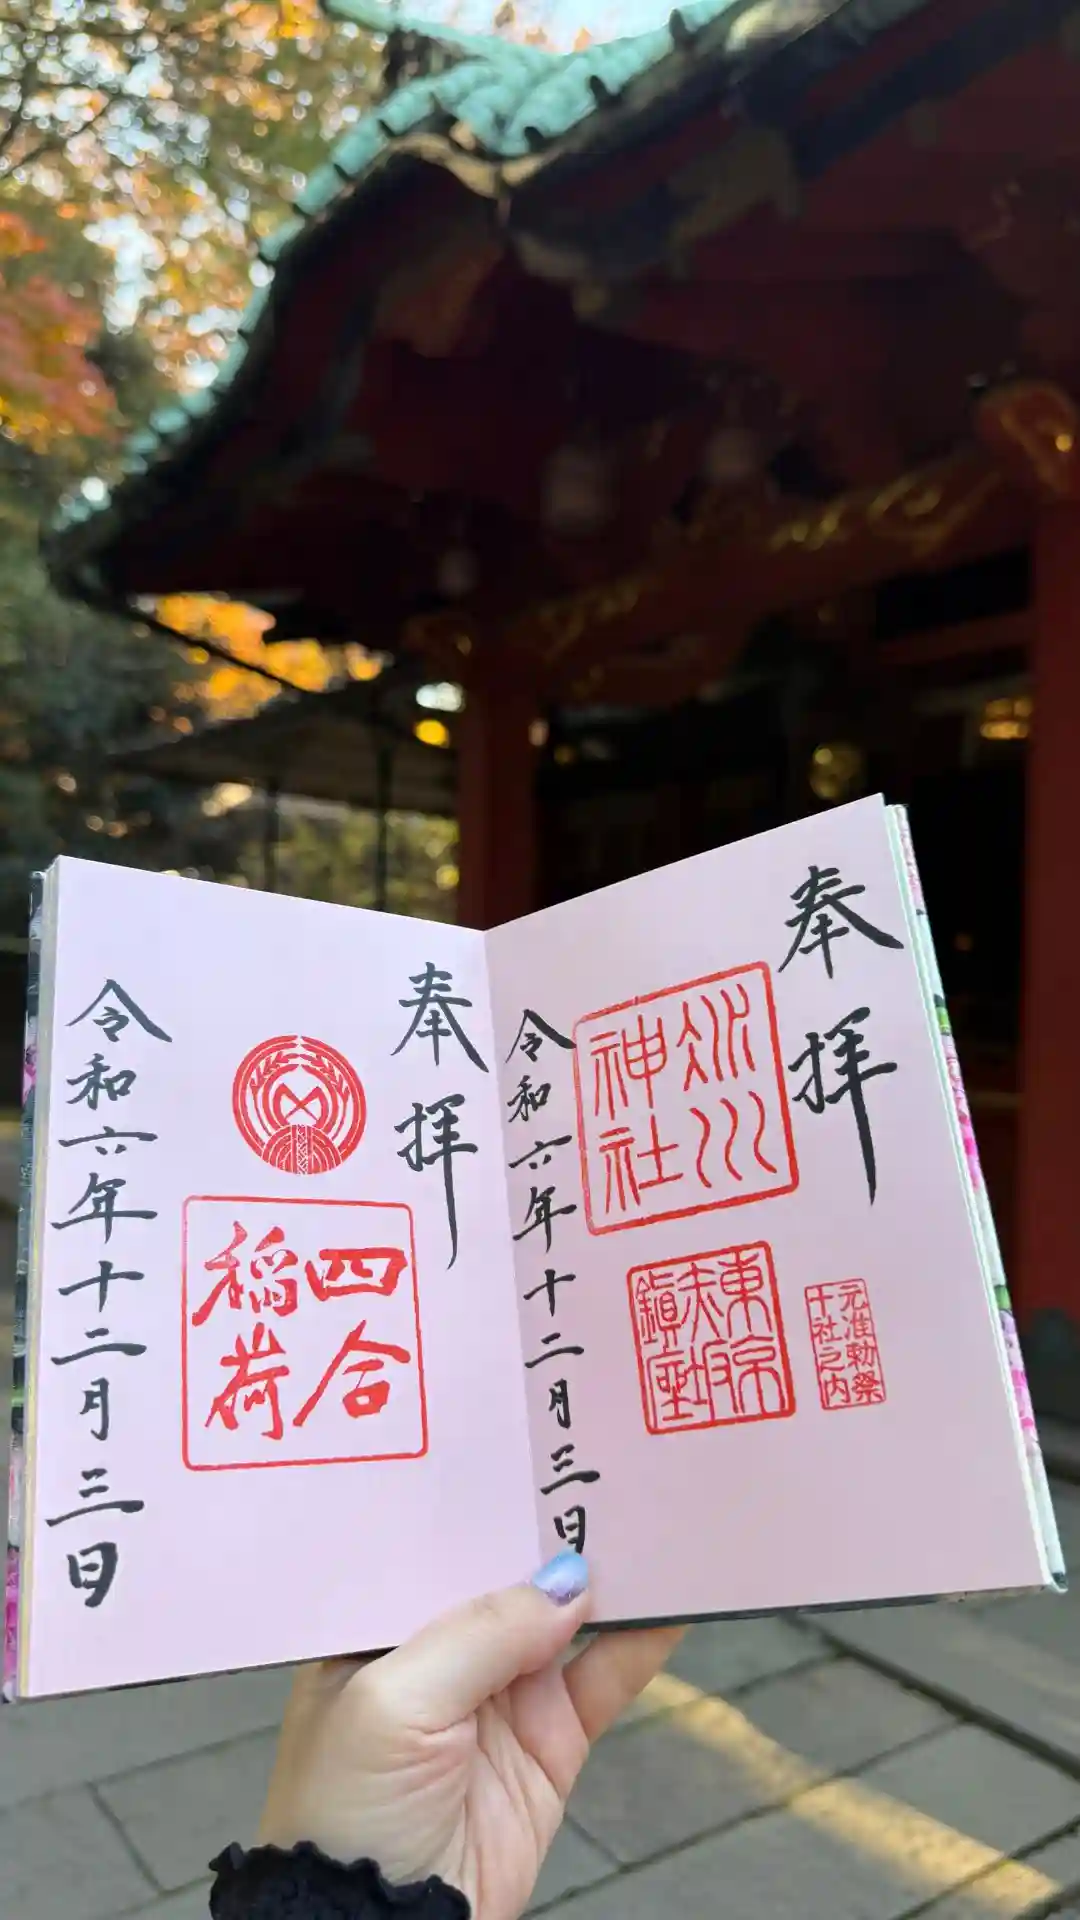 奉拝
氷川
神社
東京
赤坂
鎮座
元准勅祭
十社之内
令和六年十二月三日
奉拝
四合
稲荷
令和六年十二月三日